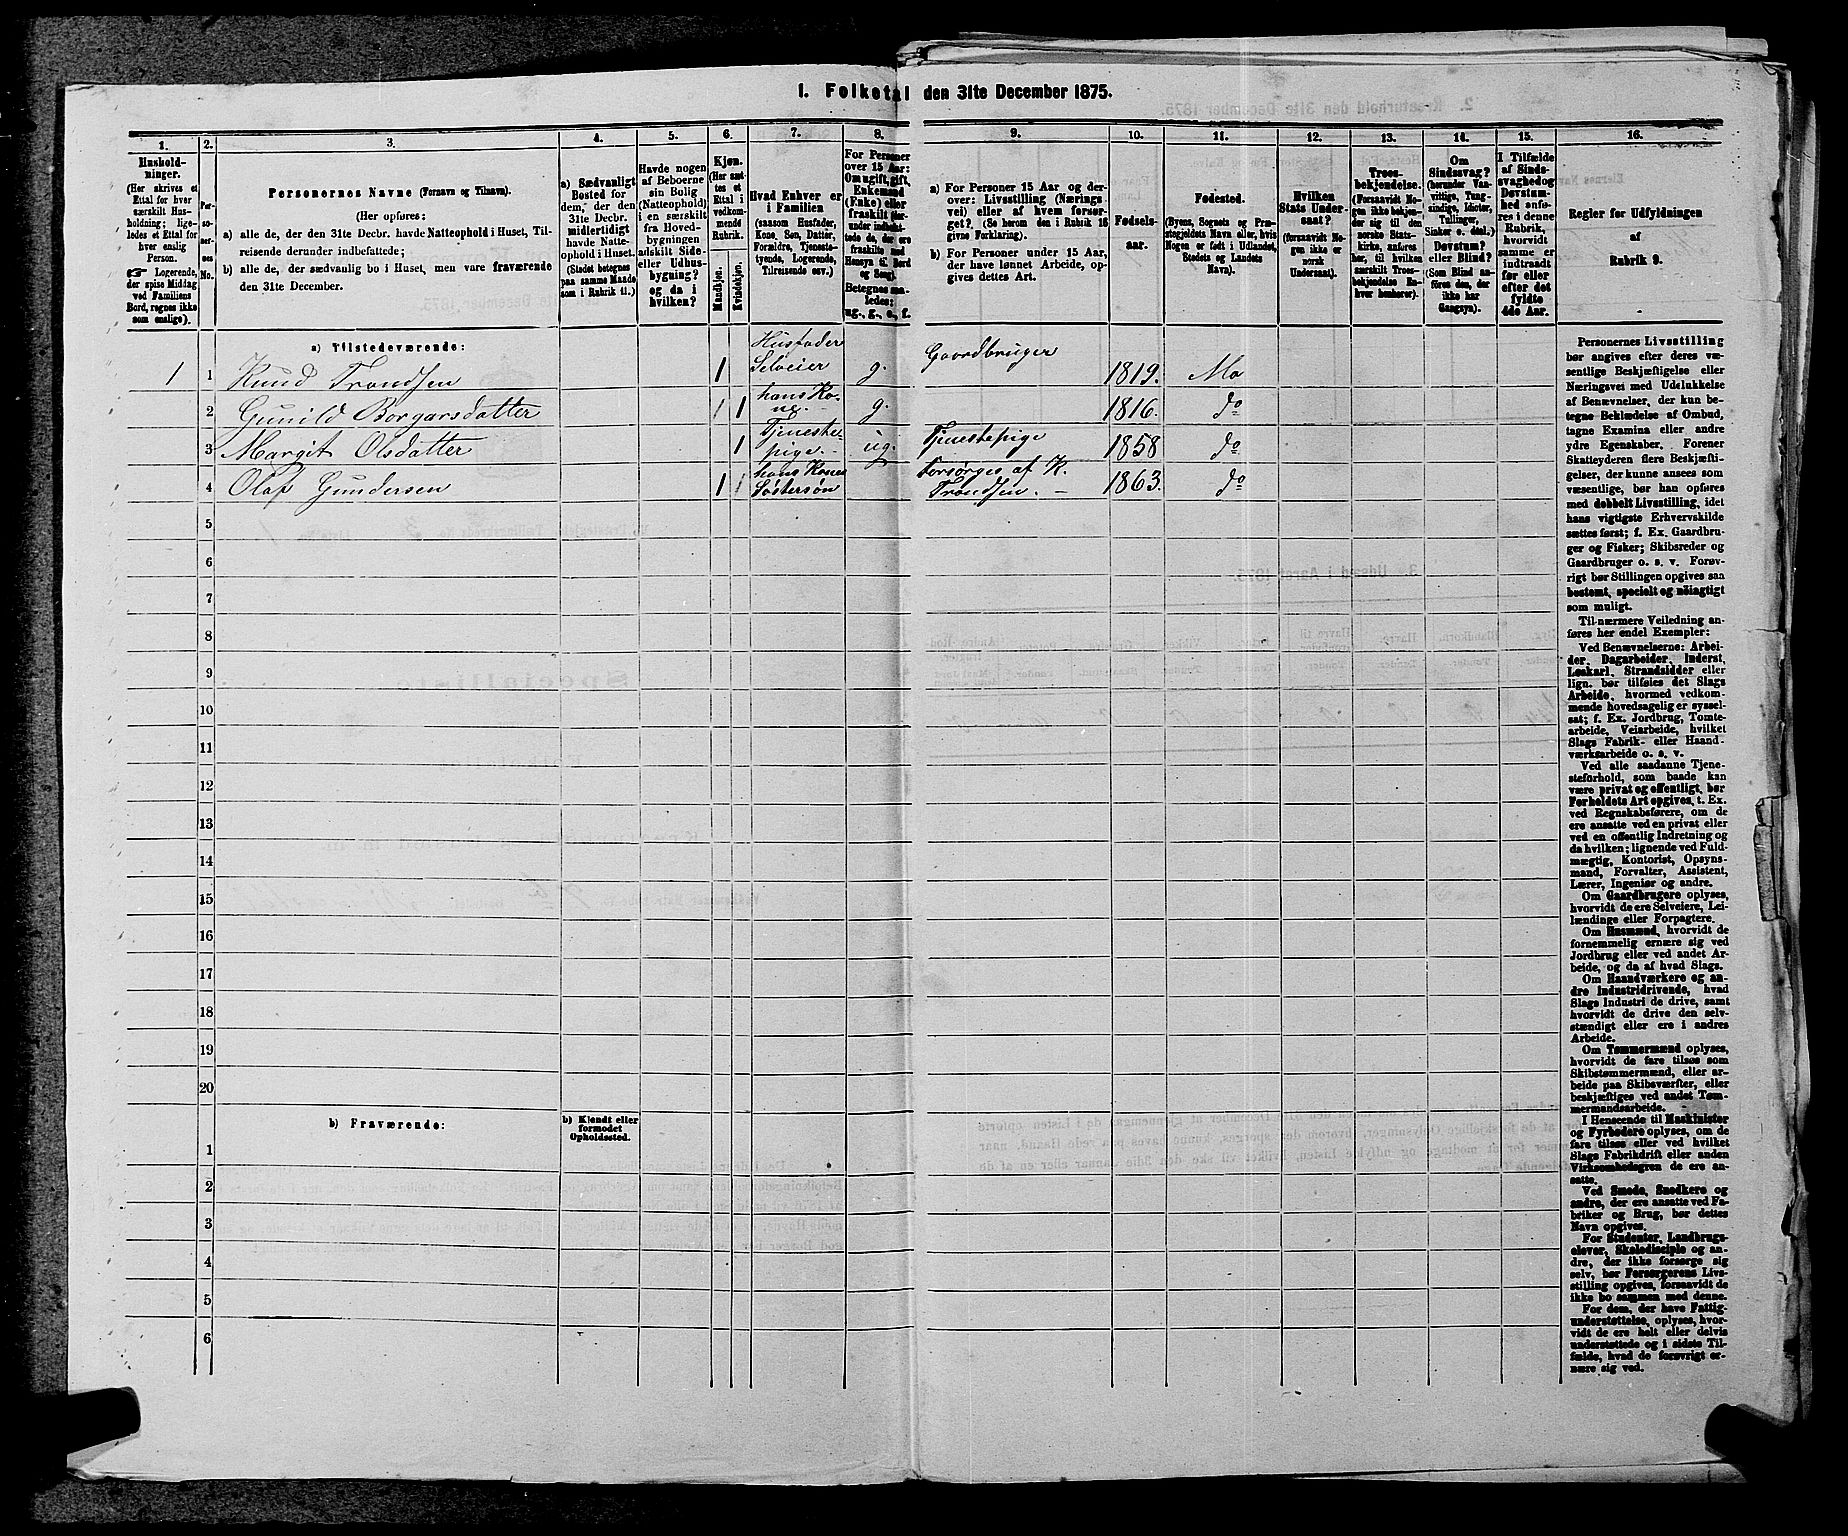 1. Folketal den 31te December 1875.
1. 2. 3. 4. 5. 6. 7. 8. 9. 10. 11. 12. 13. 14. 15. 16.
Hushold-
ninger.
(Her skrives et
Ettal for hver
særskilt Hus-
holdning; lige-
ledes et Ettal for
hver enslig
Person.
☞ Logerende,
der spise Middag
ved Familiens
Bord, regnes ikke
som enslige).
Per-
so-
ner-
nes
No.
Personernes Navne (Fornavn og Tilnavn).
(Her opføres:
a) alle de, der den 31te Decbr. havde Natteophold i Huset, Til-
reisende derunder indbefattede;
b) alle de, der sædvanlig bo i Huset, men vare fraværende
den 31te December.
a) Sædvanligt
Bosted for
dem, der den
31te Decbr.
midlertidigt
havde Natte-
ophold i Huset.
(Stedet betegnes
paa samme Maade
som i Rubrik 11.)
Havde nogen
af Beboerne
sin Bolig
(Natteophold)
i en særskilt
fra Hoved-
bygningen
adskilt Side-
eller Udhus-
bygning?
og da i
hvilken?
Kjøn.
(Her sæt-
tes et
Ettal i
vedkom-
mende
Rubrik.
Mandkjøn.
Kvindekjøn.
Hvad Enhver er
i Familien
(saasom Husfader,
Kone, Søn, Datter,
Forældre, Tjeneste-
tyende, Logerende,
Tilreisende osv.)
For Personer
over 15 Aar:
Om ugift, gift,
Enkemand
(Enke) eller
fraskilt
Betegnes saa-
ledes:
ug., g., e., f.
a) For Personer 15 Aar og der-
over: Livsstilling (Nærings-
vei) eller af hvem forsør-
get? (Se herom den i Rubrik 16
givne Forklaring).
b) For Personer under 15 Aar,
der have lønnet Arbeide, op-
gives dettes Art.
Fødsels-
aar.
Fødested.
(Byens, Sognets og Præ-
stegjeldets Navn eller, hvis
Nogen er født i Udlandet,
Stedets og Landets
Navn).
Hvilken
Stats Under-
saat?
(forsaavidt No-
gen ikke er
norsk
Undersaat).
Troes-
bekjendelse.
(Forsaavidt No-
gen ikke beken-
der sig til den
norske Stats-
kirke, anføres
her, til hvilken
særskilt Troes-
bekjendelse En-
hver henhører).
Om
Sindssvag?
(herunder Van-
vittige, Tung-
sindige, Idioter,
Tullinger,
Sinker o. desl.)
Døvstum?
eller Blind?
(Som Blind an-
føres den, der
ikke har
Gangsyn).
I Tilfælde
af Sinds-
svaghed og
Døvstum-
hed anfø-
res i denne
Rubrik,
hvorvidt
samme er
indtraadt
før eller
efter det
fyldte
4de Aar.
Regler for Udfyldningen
af
Rubrik 9.
a) Tilstedeværende:
1 1 Knud Trondsen 1 Husfader Selveier g. Gaardbruger 1819. Mo
2 Gunild Borgarsdatter 1 hans Ko-
ne. g. 1816. do
3 Margit Olsdatter 1 Tjeneste-
pige. ug. Tjenestepige 1858 do
4 Olaf Gundersen 1 hans Kones
Søstersøn forsørges af K.
Trondsen. 1863. do
5
6
7
8
9
10
11
12
13
14
15
16
17
18
19
20
b) Fraværende:
b) Kjendt eller
formodet
Opholdssted.
1
2
3
4
5
6
Personernes Livsstilling
bør angives efter deres væ-
sentlige Beskjæftigelse eller
Næringsvei med Udelukkelse
af Benævnelser, der kun be-
tegne Beklædelse af Ombud,
tagne Examina eller andre
ydre Egenskaber. Forener
Skatteyderen flere Beskjæfti-
gelser, der kunne ansees som
væsentlige, bør han opføres
med dobbelt Livsstilling, idet
hans vigtigste Erhvervskilde
sættes først; f. Ex. Gaardbru-
ger og Fisker; Skibsreder og
Gaardbruger o. s. v. Forøv-
rigt bør Stillingen opgives saa
bestemt, specielt og nøiagtigt
som muligt.
Til nærmere Veiledning an-
føres her endel Exempler:
Ved Benævnelserne: Arbei-
der, Dagarbeider, Inderst,
Løskarl, Strandsidder eller
lign. bør tilføies det Slags
Arbeide, hvormed vedkom-
mende hovedsagelig er syssel-
sat; f. Ex. Jordbrug, Tomte-
arbeide, Veiarbeide, hvilket
Slags Fabrik- eller Haand-
værksarbeide o. s. v.
Ved alle saadanne Tjene-
steforhold, som baade kan
være privat og offentligt, bør
Forholdets Art opgives, t. Ex.
ved Regnskabsførere, om de
ere ansatte ved en privat eller
ved en offentlig Indretning og
da hvilken; lignende ved Fuld-
mægtig, Kontorist, Opsyns-
mand, Forvalter, Assistent,
Lærer, Ingeniør og andre.
Om Gaardbrugere oplyses,
hvorvidt de ere Selveiere, Lei-
lændinge eller Forpagtere.
Om Husmænd, hvorvidt de
fornemmelig ernære sig ved
Jordbrug eller ved andet Ar-
beide, og da af hvad Slags.
Om Haandværkere og an-
dre Industridrivende, hvad
Slags Industri de drive, samt
hvorvidt de drive den selv-
stændigt eller ere i andres
Arbeide.
Om Tømmermænd oplyses,
hvorvidt de fare tilsøs som
Skibstømmermænd, eller ar-
beide paa Skibsværfter, eller
beskjæftiges ved andet Tøm-
mermandsarbeide.
I Henseende til Maskinister
og Fyrbødere oplyses, om de
fare tilsøs eller ved hvilket
Slags Fabrikdrift eller anden
Virksomhedsgren de ere an-
satte.
Ved Smede, Snedkere og
andre, der ere ansatte ved Fa-
briker og Brug, bør dettes
Navn opgives.
For Studenter, Landbrugs-
elever, Skoledisciple og an-
dre, der ikke forsørge sig
selv, bør Forsørgerens Livs-
stilling opgives, forsaavidt de
ikke bo sammen med denne.
For dem, der have Fattig-
understøttelse, oplyses, hvor-
vidt de ere helt eller delvis
understøttede og i sidste Til-
fælde, hvad de forøvrigt er-
nære sig ved.